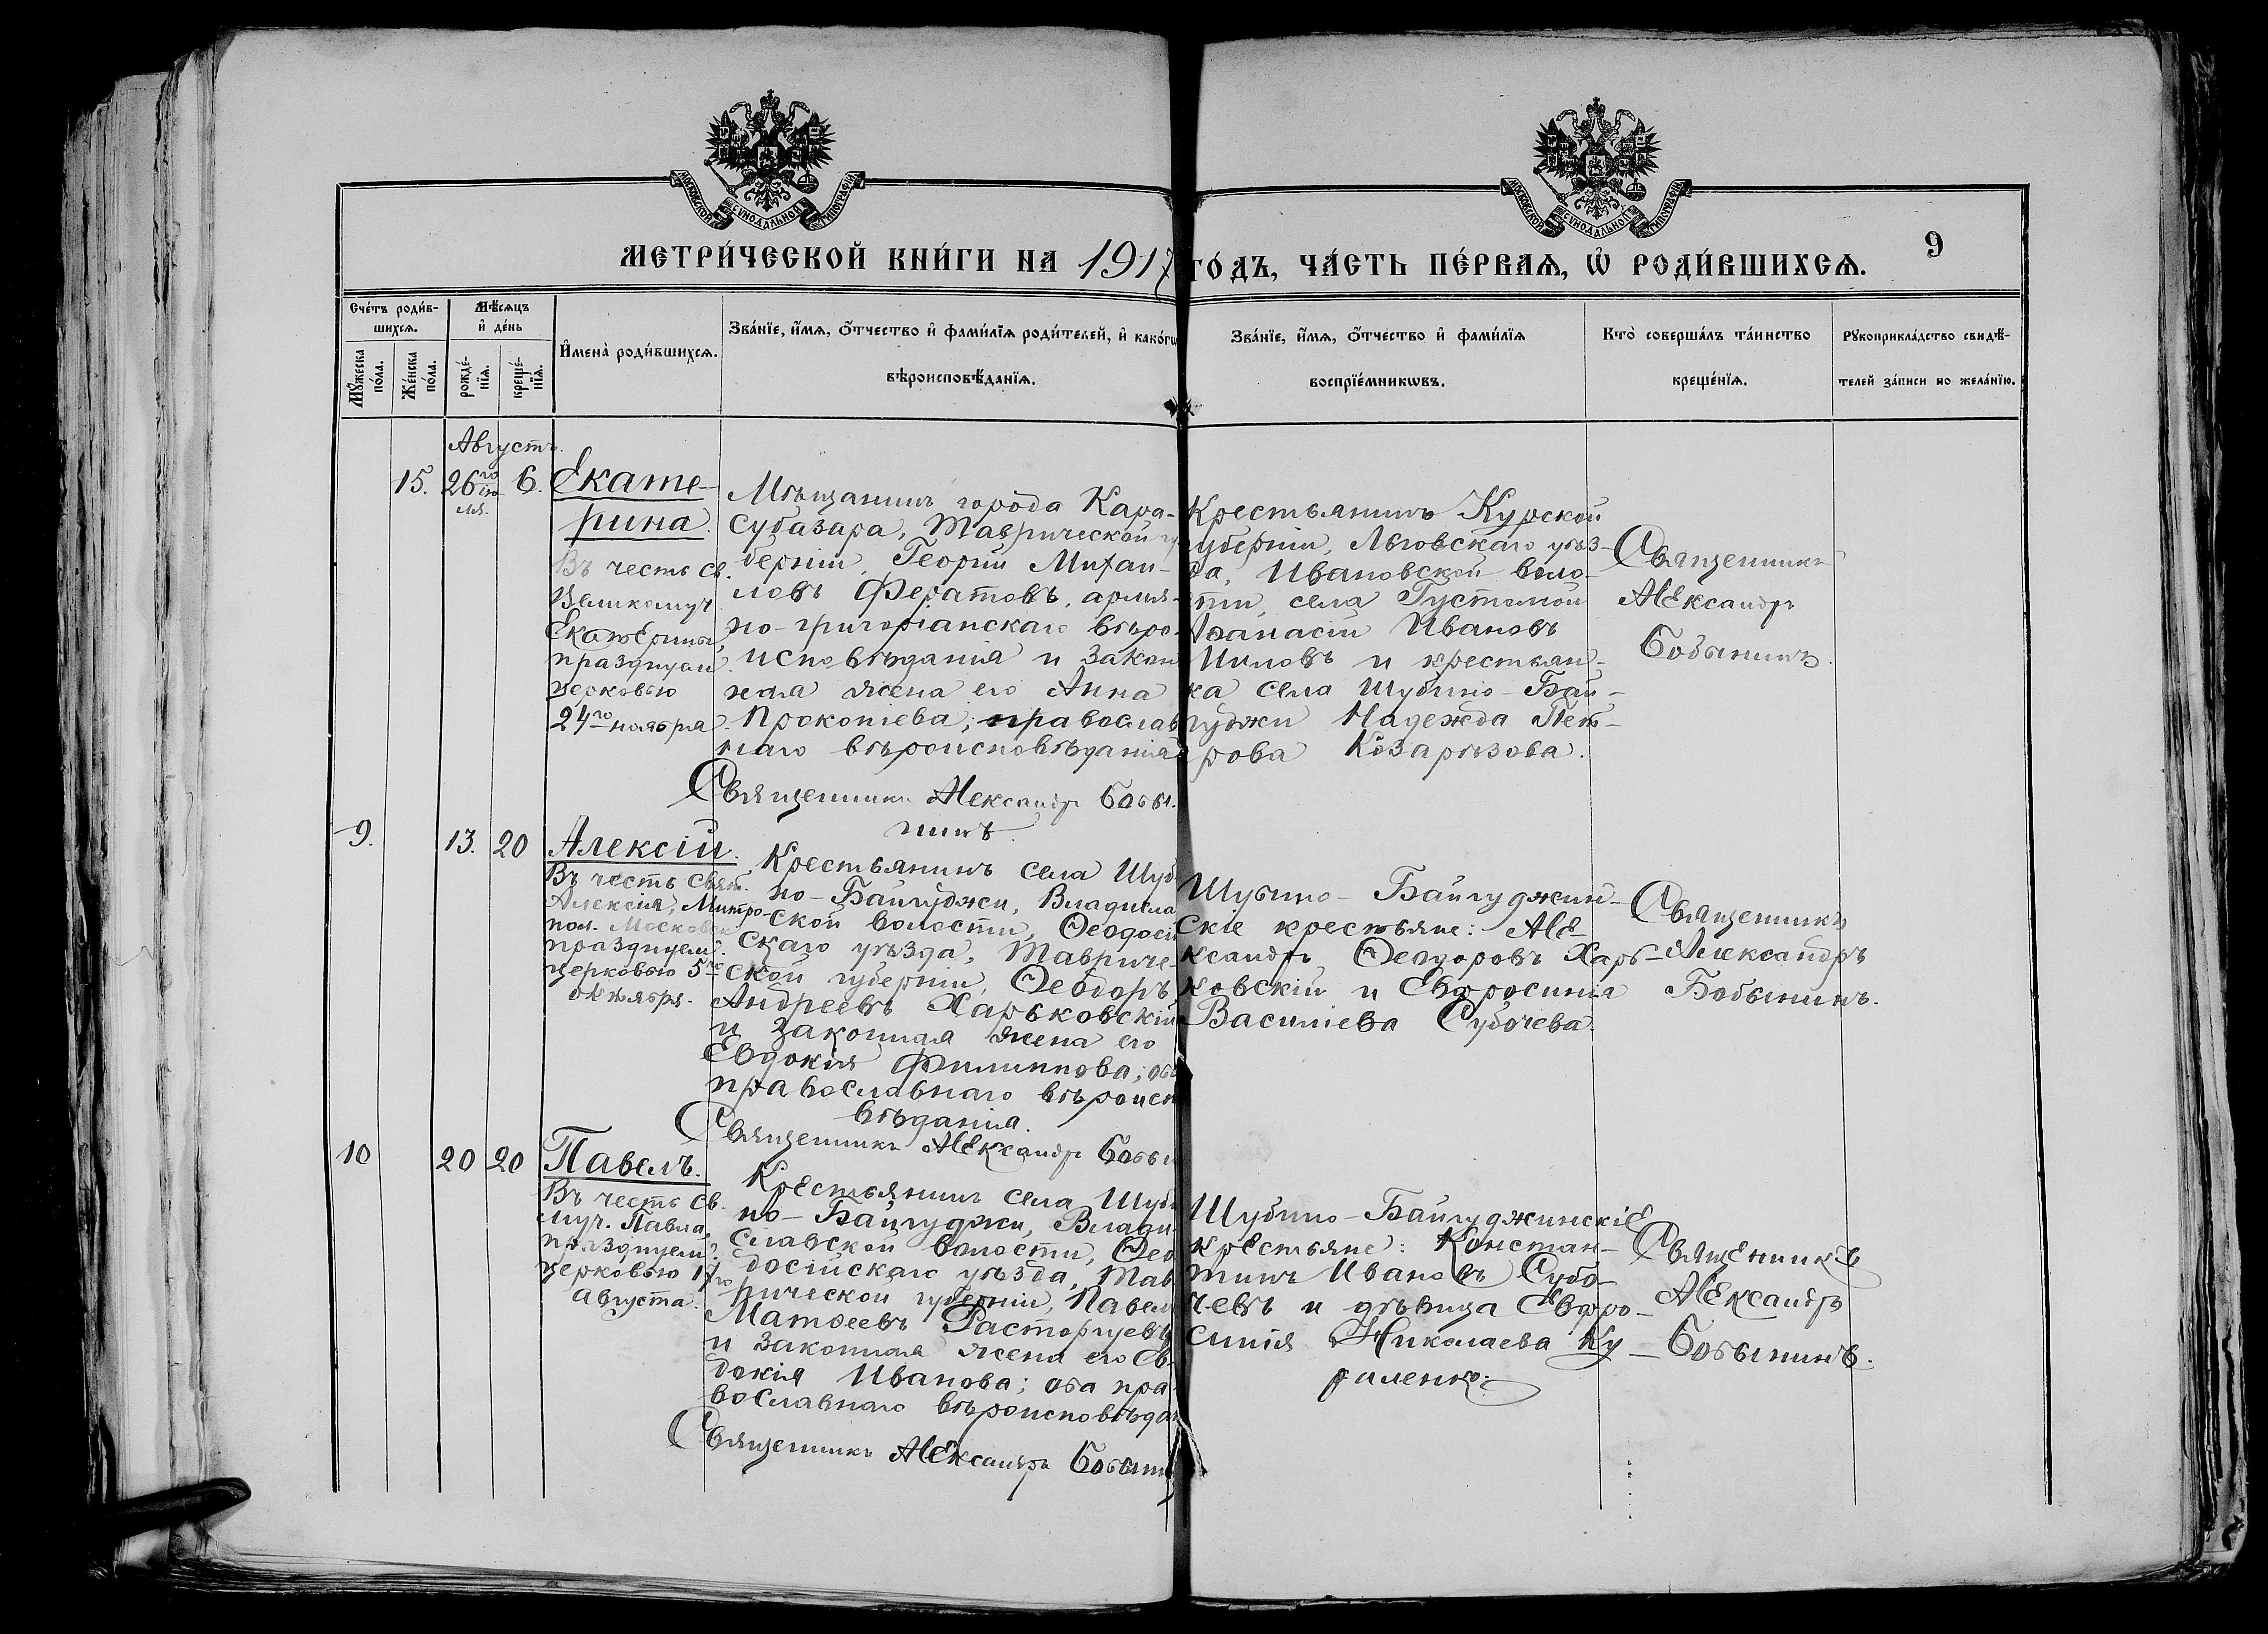 МОСКОВСКОЙ СУНОДАЛЬНОЙ ТИПОГРАФІИ
МОСКОВСКОЙ СУНОДАЛЬНОЙ ТИПОГРАФІИ
МЕТРИ́ЧЕСКОЙ КНИ́ГИ НА 1917 ГО́ДЪ, ЧА́СТЬ ПЕ́РВАѦ, Ѡ҆ РОДИ́ВШИХСѦ.
9
Сче́тъ роди́в-
шихсѧ.
Мꙋ́жеска
по́ла.
Же́нска
по́ла.
Мѣ́сѧцъ
и҆ де́нь
рожде́-
нїѧ.
креще́-
нїѧ.
И҆мена̀ роди́вшихсѧ.
Зва́нїе, и҆́мѧ, ѻ҆́тчество и҆ фами́лїѧ роди́телей, и҆ како́гѡ
вѣроисповѣ́данїѧ.
Зва́нїе, и҆́мѧ, ѻ҆́тчество и҆ фами́лїѧ
воспрїе́мникѡвъ.
Кто̀ соверша́лъ та́инство
креще́нїѧ.
Рꙋкоприкла́дство свидѣ́-
телей за́писи по жела́нїю.
Августъ.
15. 26го ію-
ля. 6.
Екате-
рина.
Въ честь Св.
Великомуч.
Екатерины,
празднуем.
церковью
24го ноября.
Мѣщанинъ города Кара-
субазара, Таврической гу
берніи, Георгій Михаи-
ловъ Фератовъ, армя-
но-григоріанскаго вѣро-
исповѣданія и закон
ная жена его Анна
Прокопіева; православ
наго вѣроисповѣданія
Священникъ Александръ Бобы-
нинъ
Крестьянинъ Курской
губерніи, Льговскаго уѣз-
да, Ивановской воло-
сти, села Густомой
Аѳанасій Ивановъ
и крестьян-
ка села Шубино-Бай-
гуджи Надежда Пет-
рова Козарызова.
Священникъ
Александръ
Бобынинъ.
9. 13. 20
Алексій.
Въ честь Свят.
Алексія, Митро-
пол. Московск
празднуем.
церковью 5го
октября.
Крестьянинъ села Шуб
но-Байгуджи, Владисла
ской волости, Ѳеодосій
скаго уѣзда, Тавриче-
ской губерніи, Ѳеодоръ
Андреевъ Харьковскій
и законная жена его
Евдокія Филиппова; оба
православнаго вѣроисп
вѣданія.
Священникъ Александръ Бобын
Шубино-Байгуджин-
скіе крестьяне: Але-
ксандръ Ѳеодоровъ Харь-
ковскій и Евфросинія
Василіева Субочева.
Священникъ
Александръ
Бобынинъ.
10 20 20
Павелъ.
Въ честь Св.
Муч. Павла,
празднуем.
церковью 17го
августа.
Крестьянинъ села Шуби
но-Байгуджи, Влади-
славской волости, Ѳео
досійскаго уѣзда, Тав
рической губерніи, Павелъ
Матѳеевъ Расторгуевъ
и законная жена его Ев-
докія Иванова; оба пра-
вославнаго вѣроисповѣдан
Священникъ Александръ Бобынин
Шубино-Байгуджинскіе
крестьяне: Констан-
тинъ Ивановъ Субо-
чевъ и дѣвица Евфро-
синія Николаева Ку-
риленко.
Священникъ
Александръ
Бобынинъ.